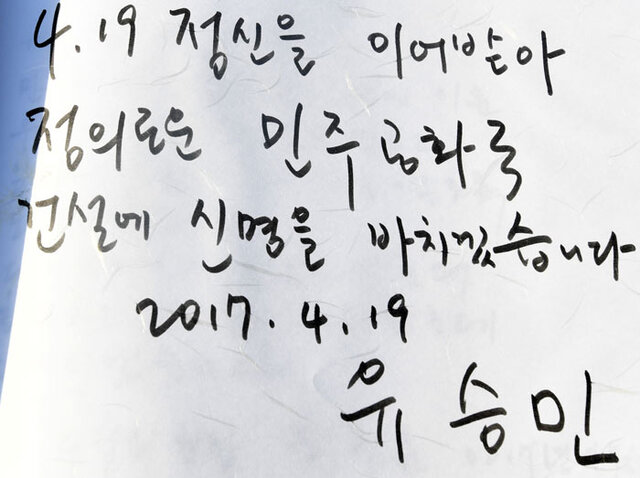 4.19 정신을 이어받아
정의로운 민주공화국
건설에 신명을 바치겠습니다
2017. 4. 19
유승민